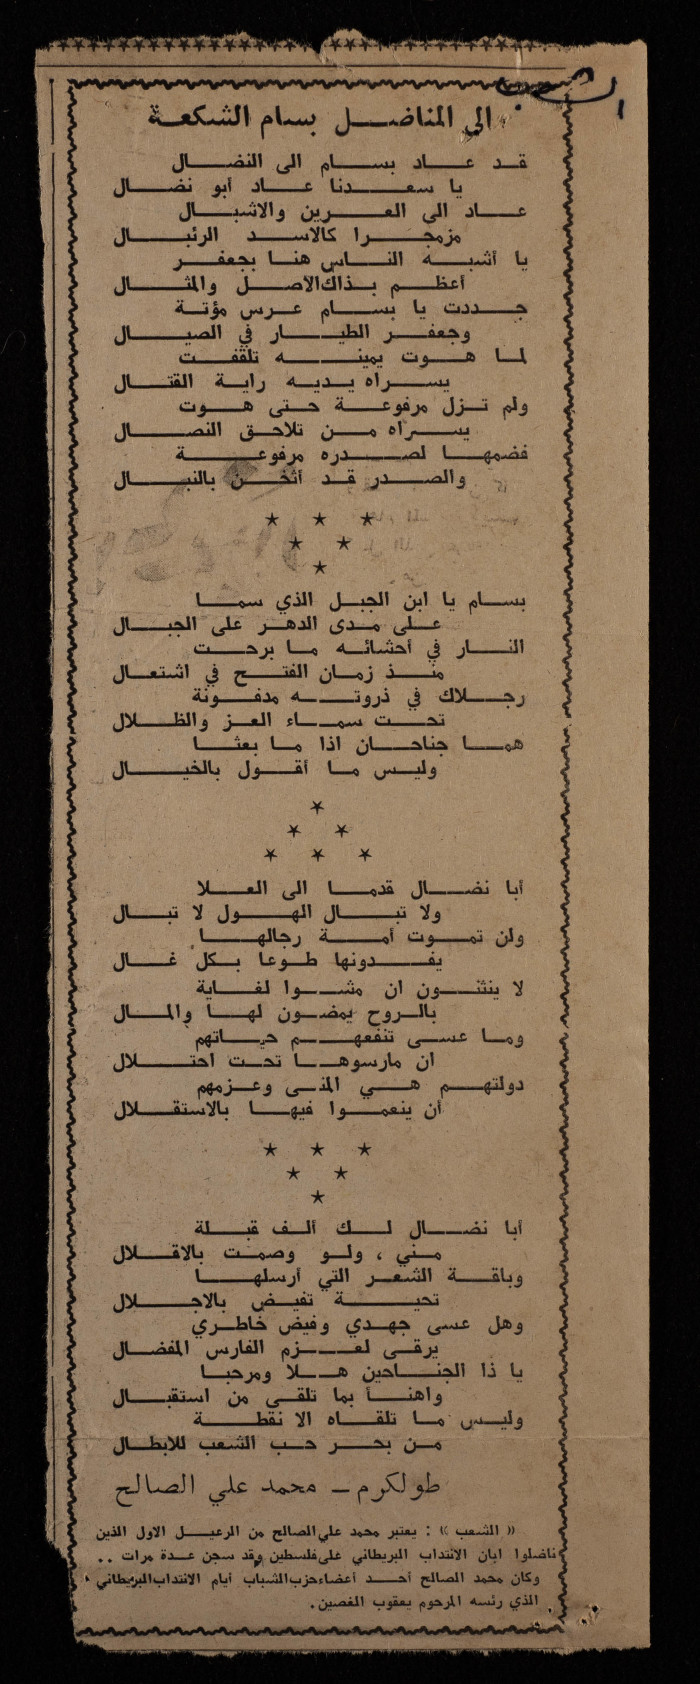 الشعب
الى المناضل بسام الشكعة
قد عاد بسام الى النضال
يا سعدنا عاد أبو نضال
عاد الى العرين والاشبال
مزمجرا كالاسد الرئبال
يا أشبه الناس هنا بجعفر
أعظم بذاك الاصل والمثال
جددت يا بسام عرس مؤتة
وجعفر الطيار في الصيال
لما هوت يمينه تلقفت
يسراه يديه راية القتال
ولم تزل مرفوعة حتى هوت
يسراه من تلاحق النصال
فضمها لصدره مرفوعة
والصدر قد أثخن بالنبال
بسام يا ابن الجبل الذي سما
على مدى الدهر على الجبال
النار في أحشائه ما برحت
منذ زمان الفتح في اشتعال
رجلاك في ذروته مدفونة
تحت سماء العز والظلال
هما جناحان اذا ما بعثا
وليس ما أقول بالخيال
أبا نضال قدما الى العلا
ولا تبال الهول لا تبال
ولن تموت أمة رجالها
يفدونها طوعا بكل غال
لا ينثنون ان مشوا لغاية
بالروح يمضون لها والمال
وما عسى تنفعهم حياتهم
ان مارسوها تحت احتلال
دولتهم هي المنى وعزمهم
أن ينعموا فيها بالاستقلال
أبا نضال لك ألف قبلة
مني ، ولو وصمت بالاقلال
وباقة الشعر التي أرسلها
تحية تفيض بالاجلال
وهل عسى جهدي وفيض خاطري
يرقى لعزم الفارس المفضال
يا ذا الجناحين هلا ومرحبا
واهنأ بما تلقى من استقبال
وليس ما تلقاه الا نقطة
من بحر حب الشعب للابطال
طولكرم - محمد علي الصالح
« الشعب » : يعتبر محمد علي الصالح من الرعيل الاول الذين
ناضلوا ابان الانتداب البريطاني على فلسطين وقد سجن عدة مرات ..
وكان محمد الصالح أحد أعضاء حزب الشباب أيام الانتداب البريطاني
الذي رئسه المرحوم يعقوب الغصين.